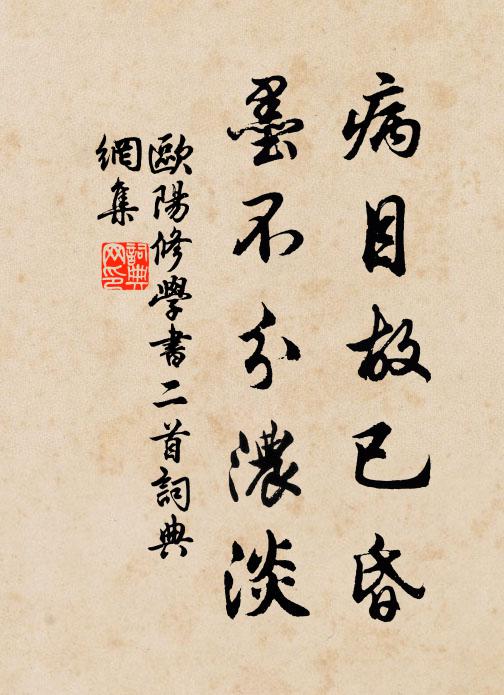 病目故已昏
墨不分濃淡
歐陽修學書二首詞典
網集
詞典
网印